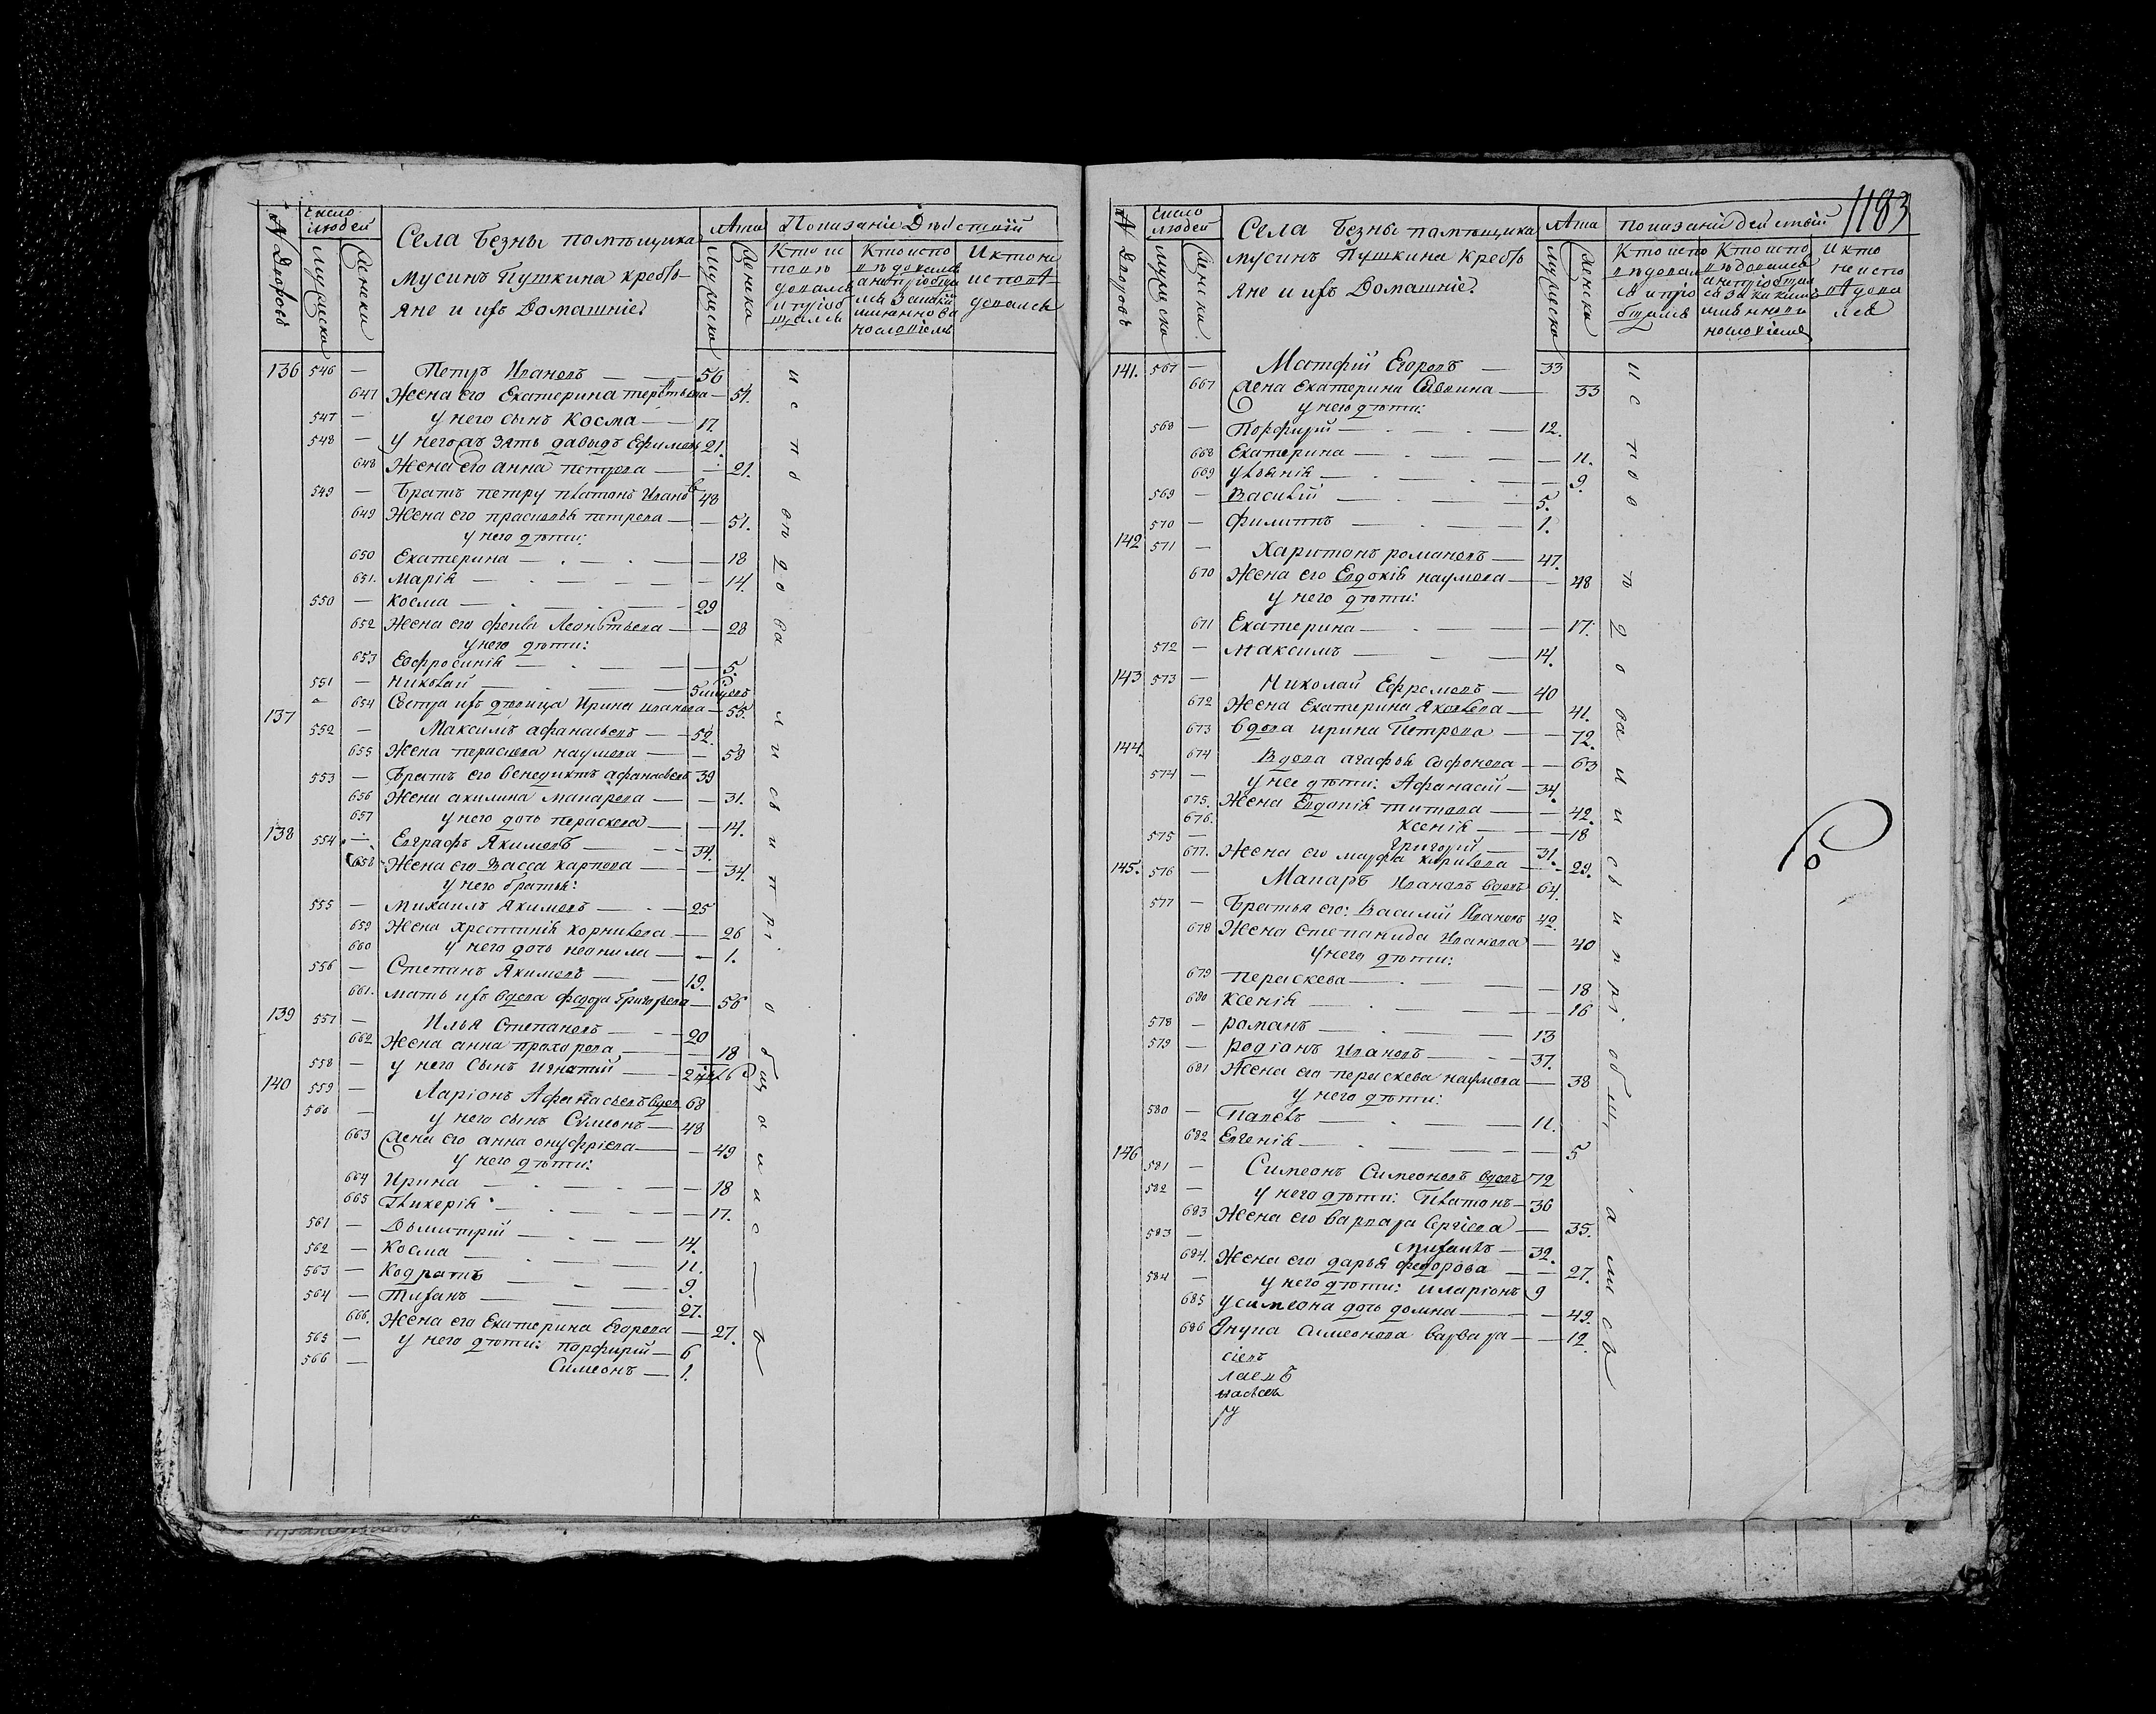 № Дворовъ
Число людей
Мужеска
Женска
Села Безны помѣщика
Мусинъ Пушкина кресть
яне и ихъ Домашніе
Лѣта
Мужеска
Женска
Показаніе Дѣйствій
Кто ис
повѣ
довалсь
и пріоб
щалсь
Кто испо
вѣдовалсь
а не пріобщал
И кто не
исповѣ
довалсь
136 546 — Петръ Ивановъ — 56
647 Жена его Екатерина — 54.
547 — у него сынъ Косма — 17.
548 — У него зять давыдъ Ефимовъ 21.
648 Жена его анна петрова — 21.
549 — Братъ петру платонъ Ивановъ 48
649 Жена его прасковья петрова — 51.
у него дѣти:
650 Екатерина — 18
651. Марія — 14.
550 — Косма — 29
652 Жена его фекла Леонтьева — 28
у него дѣти:
653 Евфросинія — 5.
551 — Николай —
654 Сестра ихъ дѣвица Ирина иванова — 55.
137
552 — Максимъ афанасьевъ — 52.
655 Жена параскева наумова — 58
553 — Братъ его Венедиктъ афанасьевъ 39
656 Жена акилина макарова — 31.
657 у него дочь параскева — 14.
138 554. — Евграфъ Якимовъ — 34.
658 Жена его Васса карпова — 34.
у него братья:
555 — Михаилъ Якимовъ — 25
659 Жена христинія корнилова — 26
660 у него дочь неонила — 1.
556 — Степанъ Якимовъ — 19.
661. мать ихъ вдова федора Григорьева — 56
139 557 — Илья Степановъ — 20
662 Жена анна прохорова — 18
558 — у него Сынъ Игнатій —
140 559 — Ларіонъ Афанасьевъ вдов 68
560 — у него сынъ Симеонъ — 48
663 Жена его анна онуфріева — 49
У него дѣти:
664 Ирина — 18
665 Гликерія — 17.
561 — Дмитрій — 14.
562 — Косма — 11.
563 — Кодратъ — 9.
564 — Тиханъ — 27.
666. Жена его Екатерина Егорова — 27.
565 — У него дѣти: порфирій — 6
566 — Симеонъ — 1.
исповѣдовались и пріобщались
1183
№ Дворовъ
Число людей
Мужеска
Женска
Села Безны помѣщика
Мусинъ Пушкина кресть
яне и ихъ Домашніе.
Лѣта
Мужеска
Женска
показаніе дѣйствій
Кто испо
вѣдовал
сь и пріо
бщалсь
Кто испо
вѣдовалсь
И кто
не испо
вѣдова
лсь
141. 567 — Матфій Егоровъ — 33
667 Жена Екатерина Саввина — 33
У него дѣти:
568 — Порфирій — 12.
668 Екатерина — 11.
669 Уліанія — 9.
569 — Василій — 5.
570 — филиппъ — 1.
142 571 — Харитонъ романовъ — 47.
670 Жена его Евдокія наумова — 48
у него дѣти:
671 Екатерина — 17.
572 — Максимъ — 14.
143 573 — Николай Ефремовъ — 40
672 Жена Екатерина Яковлева — 41.
673 вдова ирина Петрова — 72.
144. 674 Вдова агафья Сафонова — 63
574 — у нее дѣти: Афанасій — 34.
675. Жена Евдокія титова — 42.
676. ксенія — 18
575 — Григорій — 31.
677. Жена его марфа кирилова — 29.
145. 576 — Макаръ Ивановъ вдовъ 64.
577 — Братья его: Василій Ивановъ 42.
678 Жена Степанида Иванова — 40
У него дѣти:
679 параскева — 18
680 ксенія — 16
578 — романъ — 13
579 — родіонъ Ивановъ — 37.
681 Жена его параскева наумова — 38
У него дѣти:
580 — Павелъ — 11.
682 Евгенія — 5
146
581 — Симеонъ Симеоновъ вдовъ 72
582 — У него дѣти: Платонъ — 36
683 Жена его варвара Сергіева — 35.
583 — Епифанъ — 32.
684. Жена его дарья федорова — 27.
584 — у него дѣти: иларіонъ 9
685 У симеона дочь домна — 49.
686 Внука симеонова варвара — 12.
сіевъ
исповѣдовались и пріобщались